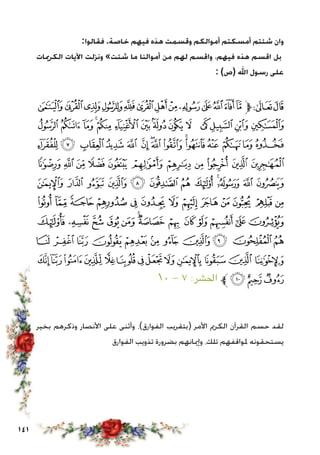 وإن شئتم أمسكتم أموالكم وقسمت هذه فيهم خاصة. فقالوا:
بل اقسم هذه فيهم، واقسم لهم من أموالنا ما شئت» ونزلت الآيات الكريمات
على رسول الله (ص) :
قال تعالى: ﴿ مَّا أَفَاءَ اللَّهُ عَلَىٰ رَسُولِهِ مِنْ أَهْلِ الْقُرَىٰ فَلِلَّهِ وَلِلرَّسُولِ وَلِذِي الْقُرْبَىٰ وَالْيَتَامَىٰ
وَالْمَسَاكِينِ وَابْنِ السَّبِيلِ كَيْ لَا يَكُونَ دُولَةً بَيْنَ الْأَغْنِيَاءِ مِنكُمْ وَمَا آتَاكُمُ الرَّسُولُ
فَخُذُوهُ وَمَا نَهَاكُمْ عَنْهُ فَانتَهُوا وَاتَّقُوا اللَّهَ إِنَّ اللَّهَ شَدِيدُ الْعِقَابِ ٧ لِلْفُقَرَاءِ
الْمُهَاجِرِينَ الَّذِينَ أُخْرِجُوا مِن دِيَارِهِمْ وَأَمْوَالِهِمْ يَبْتَغُونَ فَضْلًا مِّنَ اللَّهِ وَرِضْوَانًا
وَيَنصُرُونَ اللَّهَ وَرَسُولَهُ أُولَٰئِكَ هُمُ الصَّادِقُونَ ٨ وَالَّذِينَ تَبَوَّءُو الدَّارَ وَالْإِيمَانَ
مِن قَبْلِهِمْ يُحِبُّونَ مَنْ هَاجَرَ إِلَيْهِمْ وَلَا يَجِدُونَ فِي صُدُورِهِمْ حَاجَةً مِّمَّا أُوتُوا
وَيُؤْثِرُونَ عَلَىٰ أَنفُسِهِمْ وَلَوْ كَانَ بِهِمْ خَصَاصَةٌ وَمَن يُوقَ شُحَّ نَفْسِهِ فَأُولَٰئِكَ
هُمُ الْمُفْلِحُونَ ٩ وَالَّذِينَ جَاءُو مِن بَعْدِهِمْ يَقُولُونَ رَبَّنَا اغْفِرْ لَنَا
وَلِإِخْوَانِنَا الَّذِينَ سَبَقُونَا بِالْإِيمَانِ وَلَا تَجْعَلْ فِي قُلُوبِنَا غِلًّا لِّلَّذِينَ آمَنُوا رَبَّنَا إِنَّكَ
رَءُوفٌ رَّحِيمٌ ١٠ ﴾ الحشر: ٧ - ١٠
لقد حسم القرآن الكريم الأمر (بتقريب الفوارق). وأثنى على الأنصار وذكرهم بخير
يستحقونه لمواقفهم تلك. وإيمانهم بضرورة تذويب الفوارق
١٤١